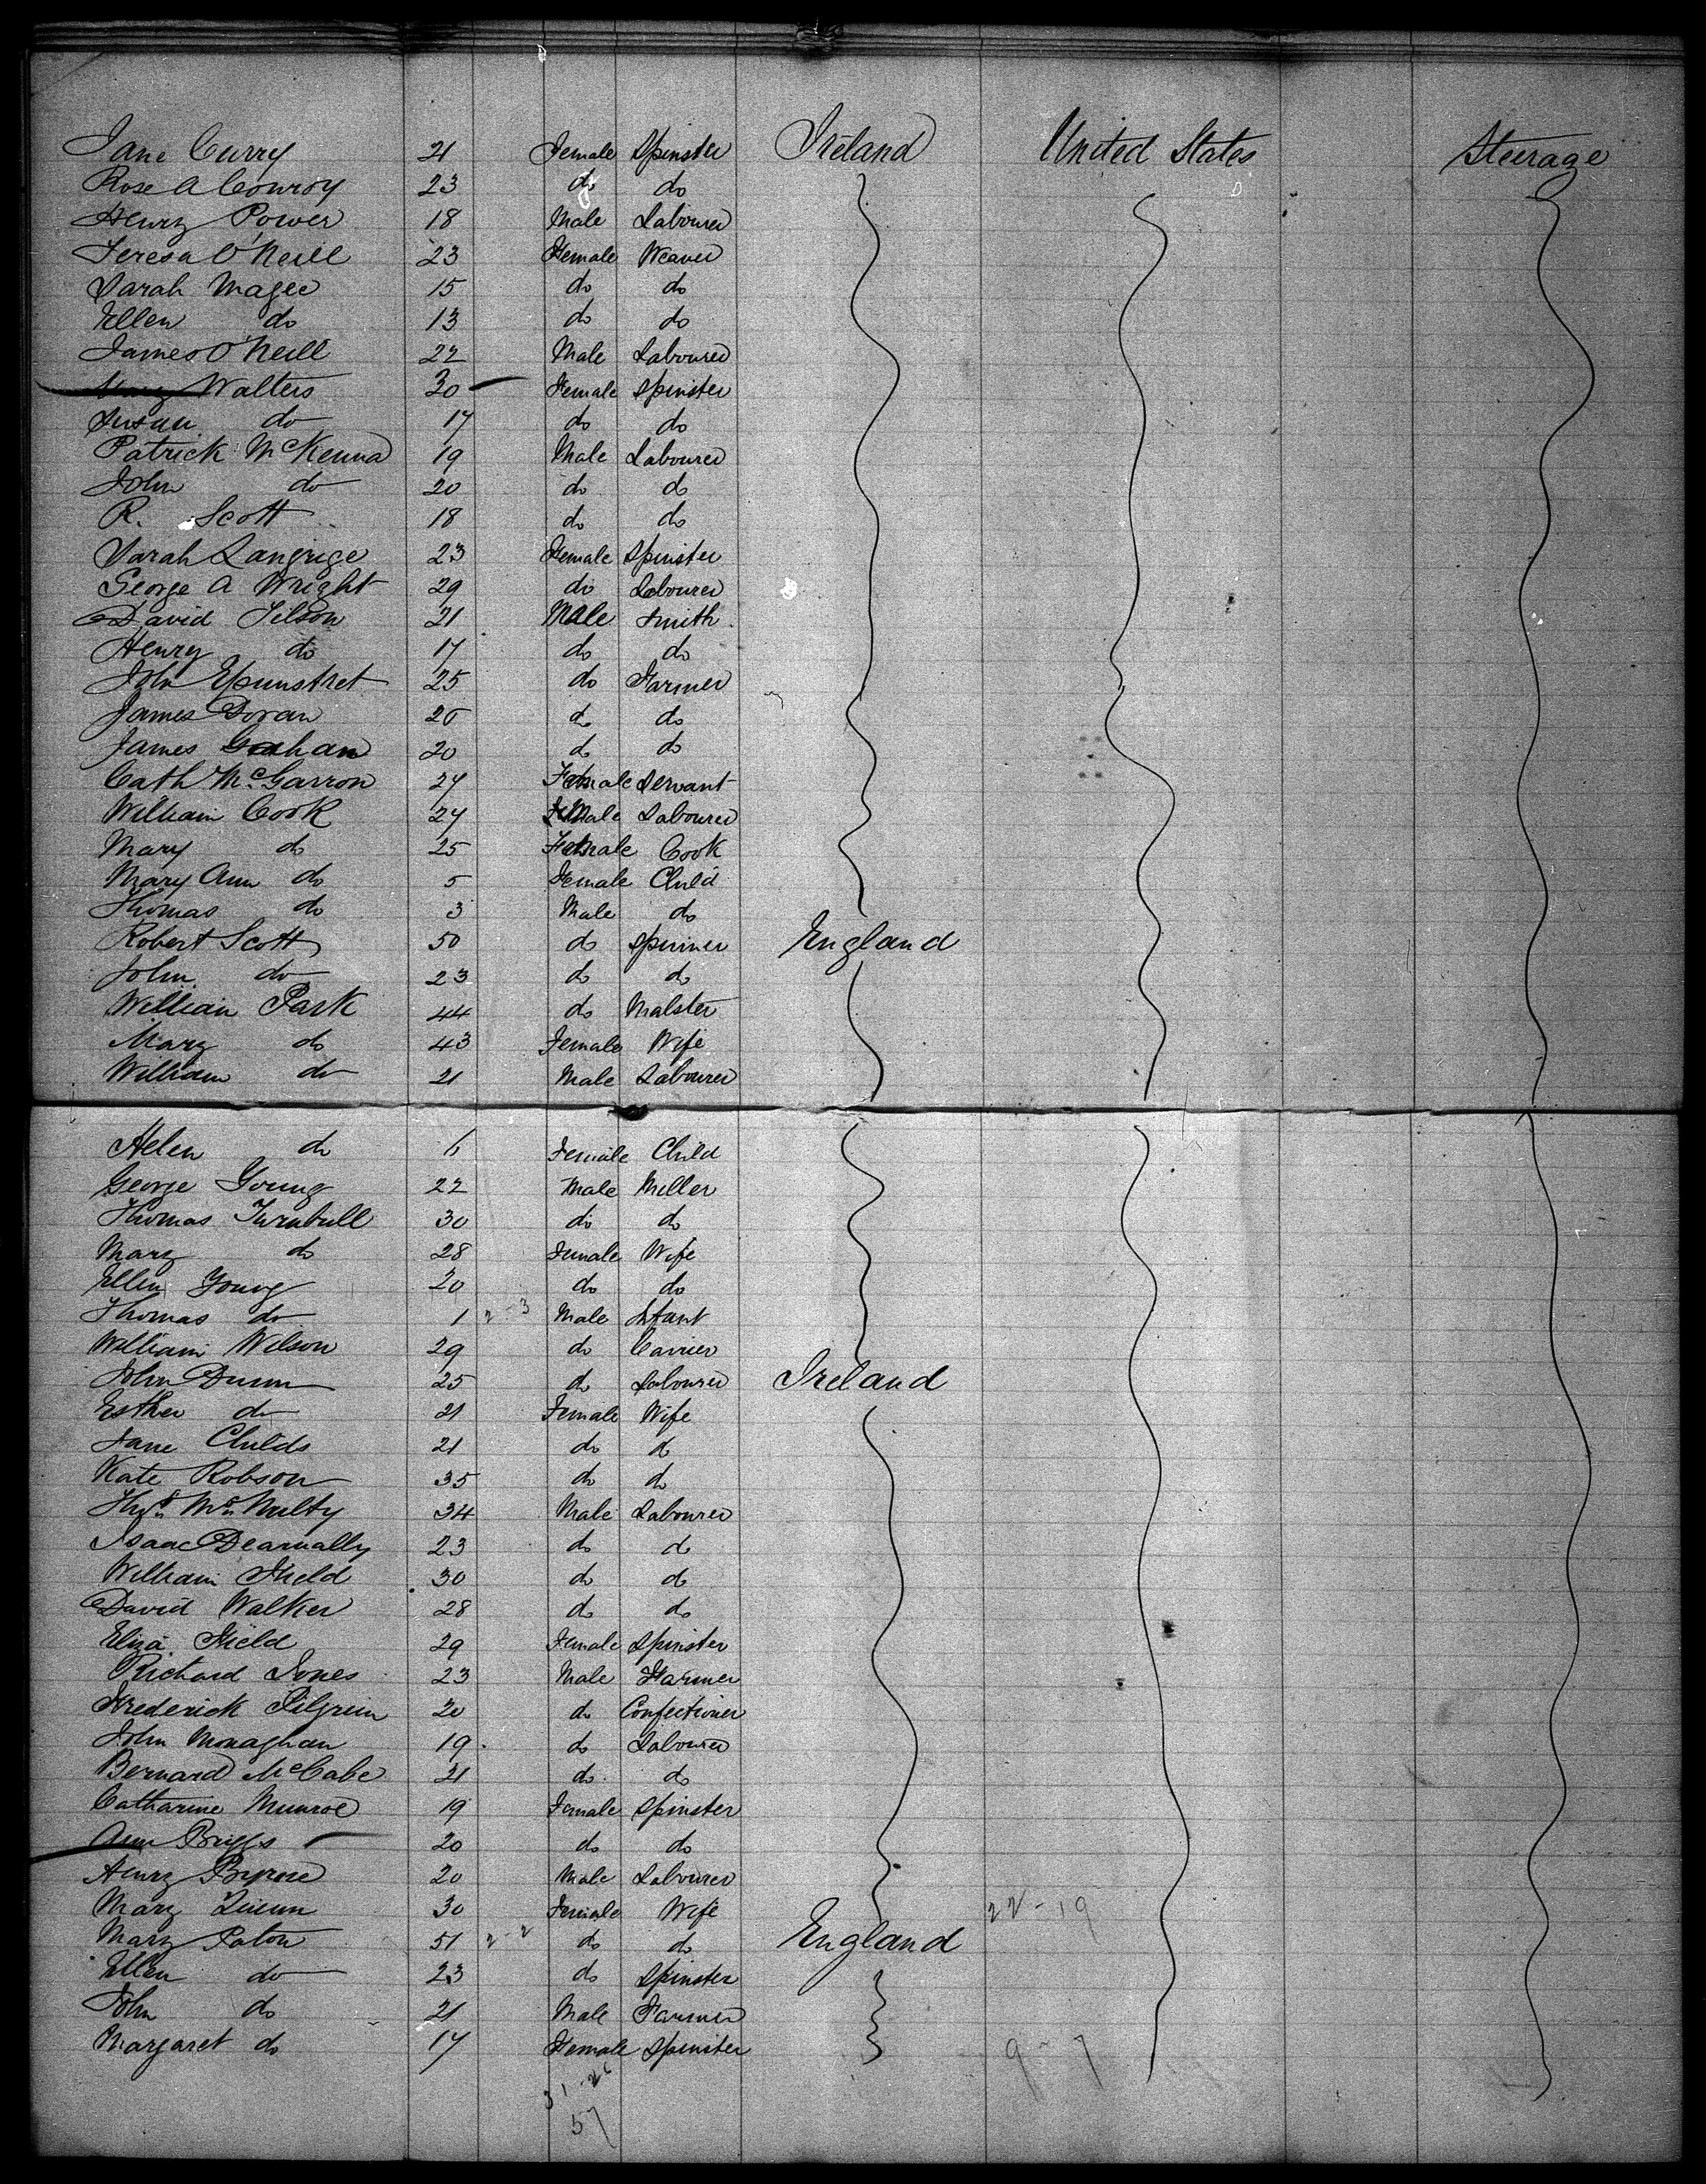 Jane Curry 21 Female Spinster Ireland United States Steerage
Rose A Conroy 23 do do
Henry Power 18 Male Labourer
Teresa O'Neill 23 Female Weaver
Sarah Magee 15 do do
Ellen do 13 do do
James O'Neill 22 Male Labourer
Mary Walters 30 Female Spinster
Susan do 17 do do
Patrick McKenna 19 Male Labourer
John do 20 do do
R. Scott 18 do do
Sarah Langrige 23 Female Spinster
George A Wright 29 do Labourer
David Tilson 21 Male Smith
Henry do 17 do do
John 25 do Farmer
James Doran 20 do do
James Graham 20 do do
Cath McGarron 27 Female Servant
William Cook 27 Male Labourer
Mary do 25 Female Cook
Mary Ann do 5 Female Child
Thomas do 3 Male do
Robert Scott 50 do Spinner England
John do 23 do do
William Park 44 do Malster
Mary do 43 Female Wife
William do 21 Male Labourer
Helen do 6 Female Child
George Young 22 Male Miller
Thomas Turnbull 30 do do
Mary do 28 Female Wife
Ellen Young 20 do do
Thomas do 1 2-3 Male Infant
William Wilson 29 do Carrier
John Dunn 25 do Labourer Ireland
Esther do 21 Female Wife
Jane Childs 21 do do
Kate Robson 35 do do
Thos McNulty 34 Male Labourer
Isaac Dearnally 23 do do
William Field 30 do do
David Walker 28 do do
Eliza Field 29 Female Spinster
Richard Jones 23 Male Farmer
Frederick Pilgrim 20 do Confectioner
John Monaghan 19 do Labourer
Bernard McCabe 21 do do
Catharine Munroe 19 Female Spinster
Ann Briggs 20 do do
Henry Byrne 20 Male Labourer
Mary Quinn 30 Female Wife 22-19
Mary Paton 51 2-2 do do England
Ellen do 23 do Spinster
John do 21 Male Farmer
Margaret do 17 Female Spinster 9-7
31-26
57